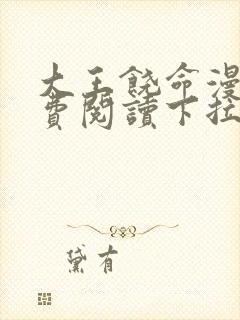 大王饒命漫
費閱讀下拉
黛有